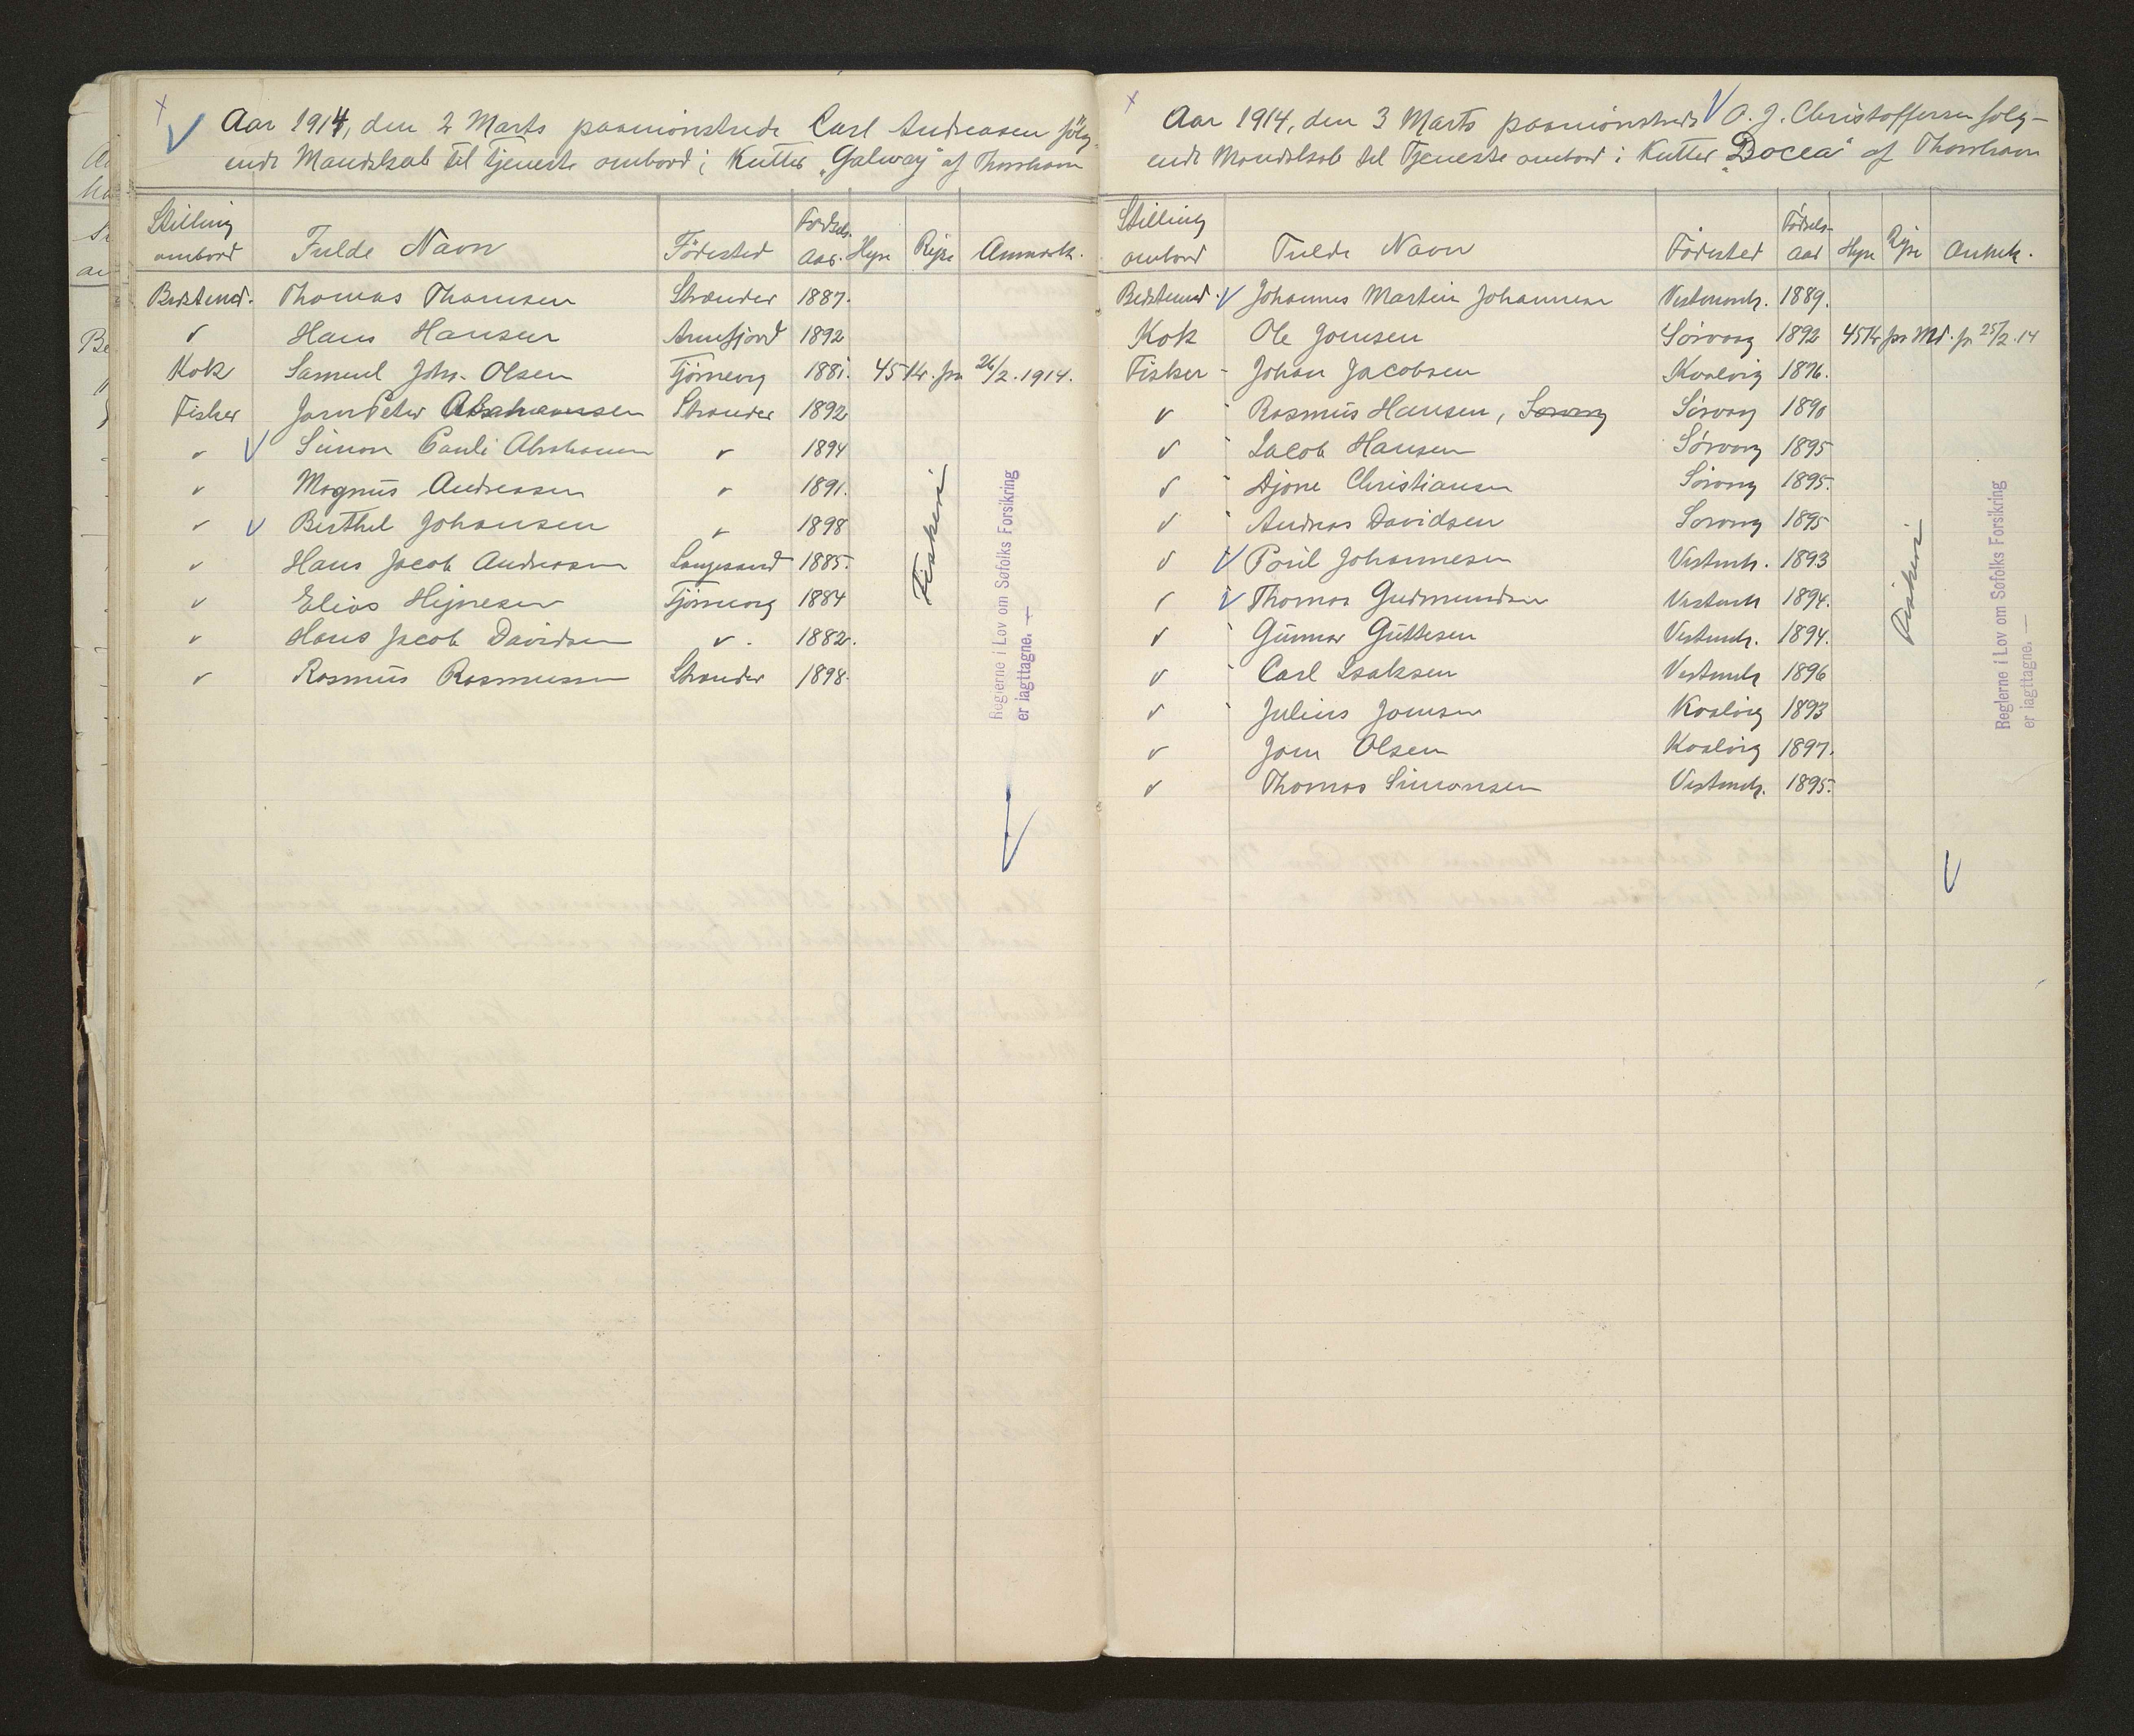 Aar 1914, den 2 Marts paamönstrede Carl Andreasen fölg-
ende Mandskab til Tjeneste ombord i Kutter „Galway" af Thorshavn
Stilling ombord Fulde Navn Födested Födsels-aar. Hyre Rejse Anmærk.
Bedstemd. Thomas Thomsen Strænder 1887.
" Hans Hansen Arnefjord 1892
Kok Samuel Joh. Olsen Tjörnevig 1881. 45 Kr. fra 26/2.1914.
Fisker Joen Peter Abrahamsen Strænder 1892
" Simon Pauli Abrahamsen " 1894
" Magnus Andreasen " 1891.
" Berthel Johansen " 1898
" Hans Jacob Andreasen Langesand 1885.
" Elias Hejnesen Tjörnevig 1884
" Hans Jacob Davidsen " 1882.
" Rasmus Rasmussen Strænder 1898.
Fiskeri
Reglerne i Lov om Søfolks Forsikring
er iagttagne. —
Aar 1914, den 3 Marts paamönstrede O. J. Christoffersen følg-
ende Mandskab til Tjeneste ombord i Kutter „Docea" af Thorshavn
Stilling ombord Fulde Navn Födested Födsels-aar Hyre Rejse Anmk.
Bedstemd. Johannes Martin Johannesen Vestmanh. 1889.
Kok Ole Joensen Sörvaag 1892 45 Kr pr Md. fr 25/2.14
Fisker - Johan Jacobsen Kvalvig 1876.
" Rasmus Hansen, Sörvaag Sörvaag 1890
" Jacob Hansen Sörvaag 1895
" Djone Christiansen Sörvaag 1895.
" Andreas Davidsen Sorvaag 1895
" Poul Johannesen Vestmh. 1893
" Thomas Gudmundsen Vestmh 1894.
" Gunnar Guttesen Vestmh. 1894.
" Carl Isaksen Vestmh 1896
" Julius Joensen Kvalvig 1893
" Joen Olsen Kvalvig 1897.
" Thomas Simonsen Vestmh. 1895.
Fiskeri
Reglerne i Lov om Søfolks Forsikring
er iagttagne. —